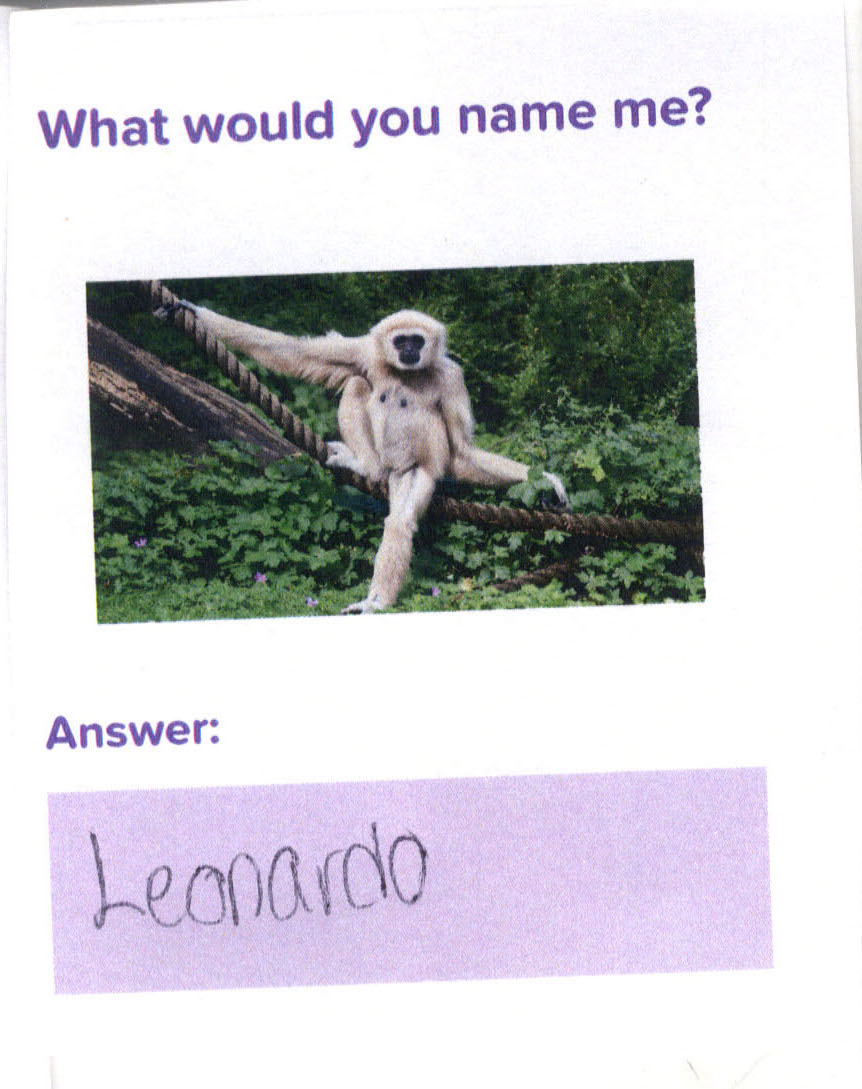 What would you name me?
Answer:
Leonardo